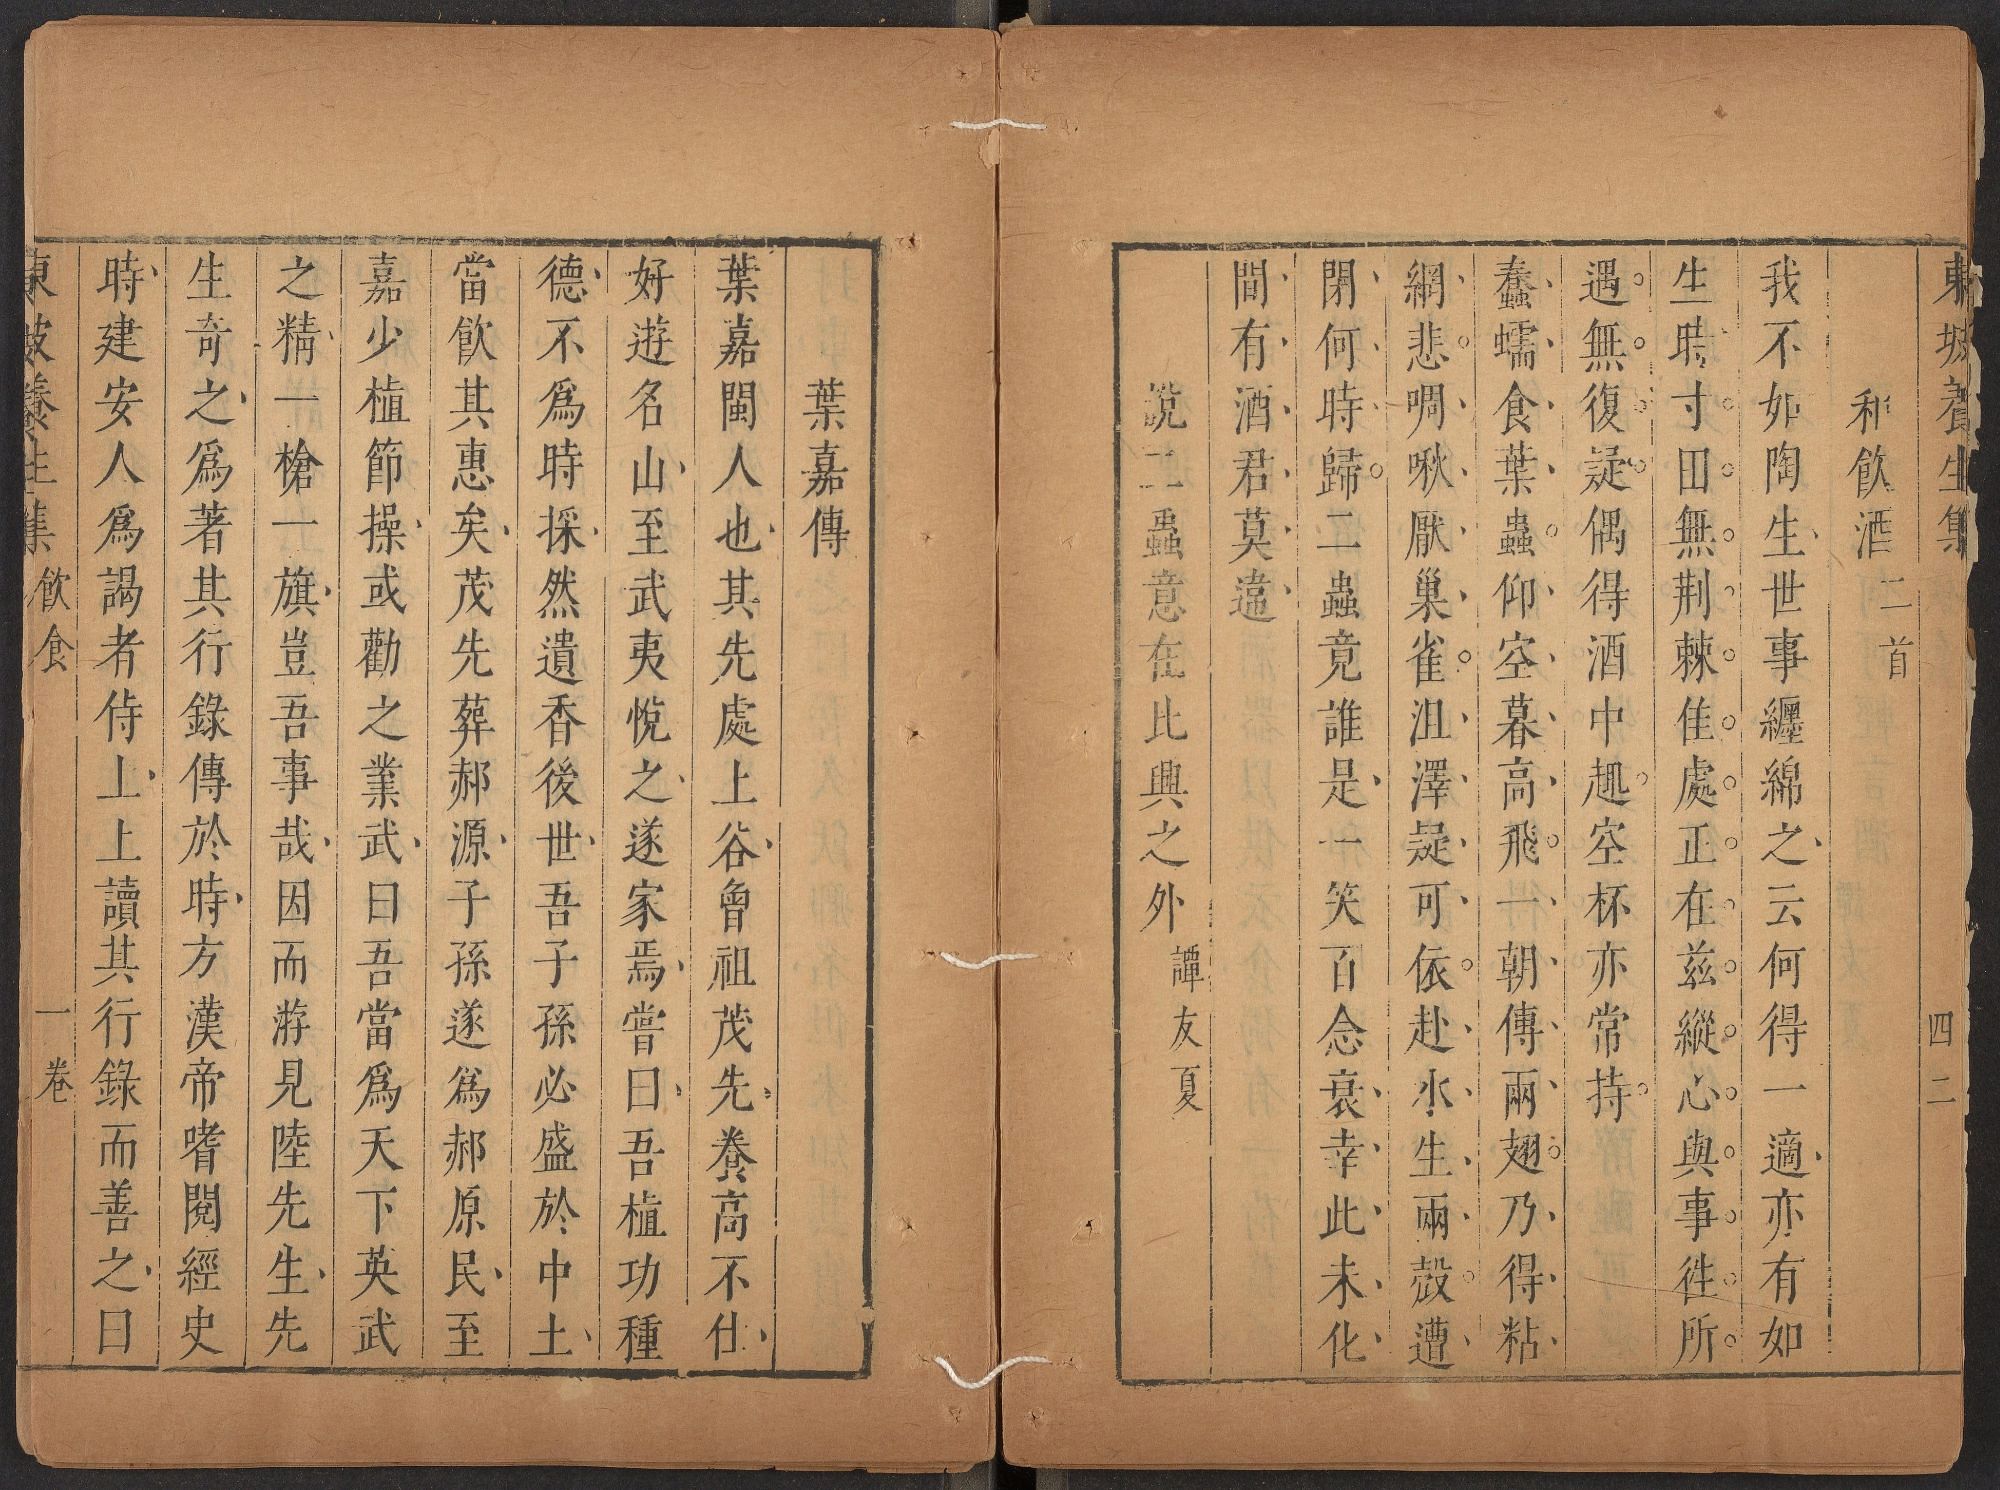 東坡養生集 四二
和飲酒二首
我不如陶生世事纏綿之云何得一適亦有如
生時寸田無荆棘佳處正在兹縱心與事徃所
遇無復疑偶得酒中趣空杯亦常持
蠢蠕食葉蟲仰空暮高飛一朝傳兩翅乃得粘
網悲啁啾厭巢雀沮澤疑可依赴水生兩殻遭
閉何時歸二蟲竟誰是一笑百念衰幸此未化
間有酒君莫違
說二蟲意在比興之外譚友夏
葉嘉傳
葉嘉閩人也其先處上谷曾祖茂先養高不仕
好遊名山至武夷悅之遂家焉嘗曰吾植功種
德不爲時採然遺香後世吾子孫必盛於中土
當飲其惠矣茂先葬郝源子孫遂爲郝原民至
嘉少植節操或勸之業武曰吾當爲天下英武
之精一槍一旗豈吾事哉因而游見陸先生先
生奇之爲著其行錄傳於時方漢帝嗜閱經史
時建安人爲謁者侍上上讀其行錄而善之曰
東坡養生集 飲食 一卷